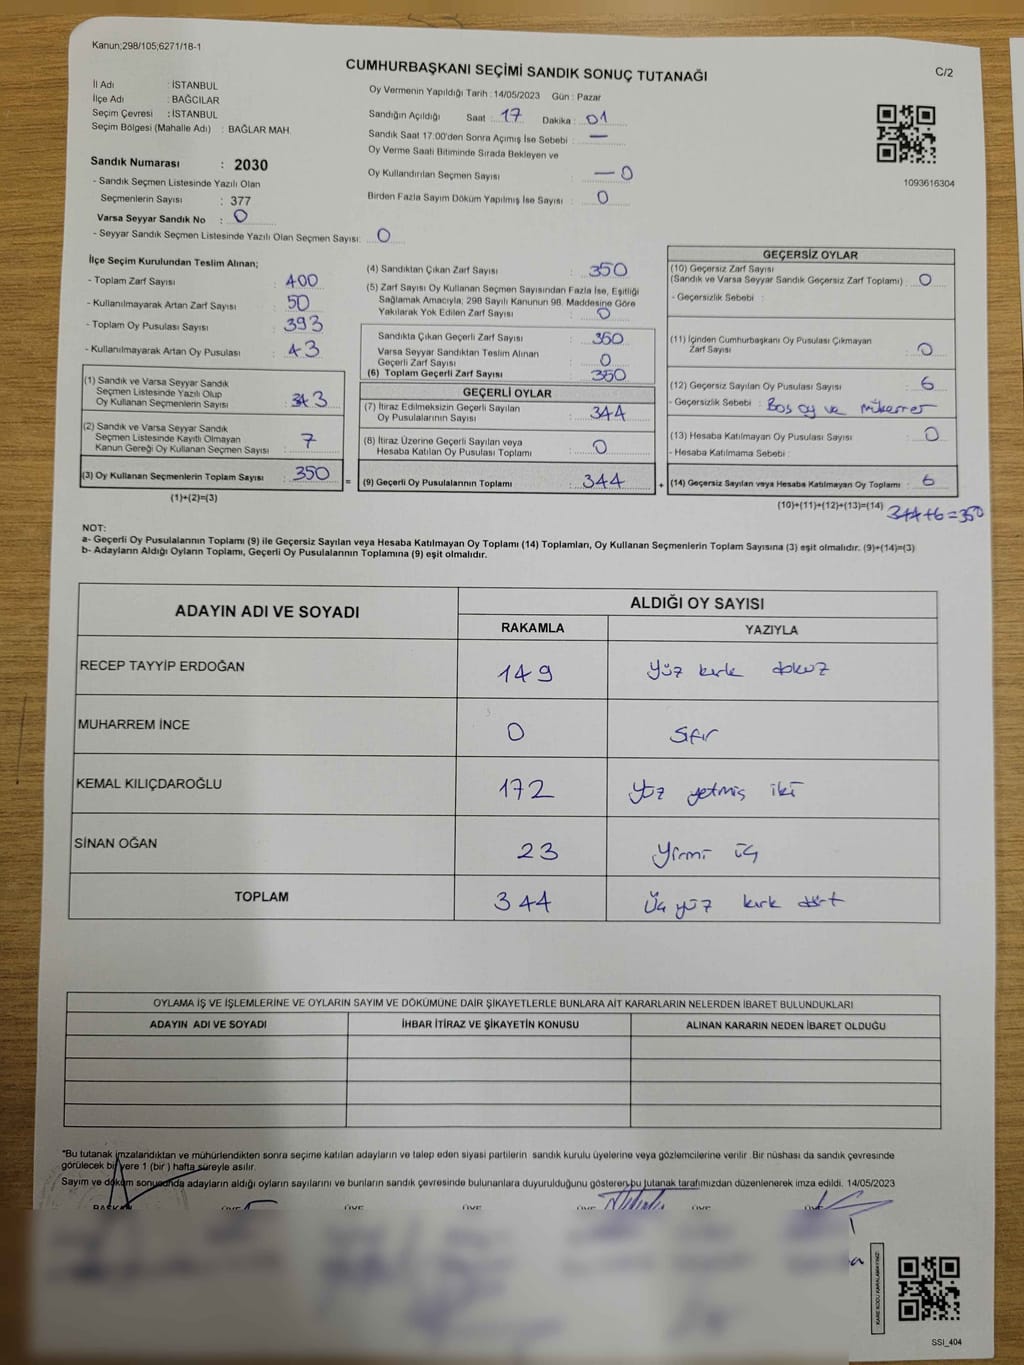 Kanun;298/105;6271/18-1
CUMHURBAŞKANI SEÇİMİ SANDIK SONUÇ TUTANAĞI
C/2
İl Adı : İSTANBUL
İlçe Adı : BAĞCILAR
Seçim Çevresi : İSTANBUL
Seçim Bölgesi (Mahalle Adı) : BAĞLAR MAH.
Oy Vermenin Yapıldığı Tarih : 14/05/2023 Gün : Pazar
Sandığın Açıldığı Saat : 17 Dakika : 01
Sandık Saat 17:00'den Sonra Açımış İse Sebebi : —
Oy Verme Saati Bitiminde Sırada Bekleyen ve
Oy Kullandırılan Seçmen Sayısı : — 0
Birden Fazla Sayım Döküm Yapılmış İse Sayısı : 0
1093616304
Sandık Numarası : 2030
- Sandık Seçmen Listesinde Yazılı Olan
Seçmenlerin Sayısı : 377
Varsa Seyyar Sandık No : 0
- Seyyar Sandık Seçmen Listesinde Yazılı Olan Seçmen Sayısı: 0
İlçe Seçim Kurulundan Teslim Alınan;
- Toplam Zarf Sayısı : 400
- Kullanılmayarak Artan Zarf Sayısı : 50
- Toplam Oy Pusulası Sayısı : 393
- Kullanılmayarak Artan Oy Pusulası : 43
(1) Sandık ve Varsa Seyyar Sandık
Seçmen Listesinde Yazılı Olup
Oy Kullanan Seçmenlerin Sayısı : 343
(2) Sandık ve Varsa Seyyar Sandık
Seçmen Listesinde Kayıtlı Olmayan
Kanun Gereği Oy Kullanan Seçmen Sayısı : 7
(3) Oy Kullanan Seçmenlerin Toplam Sayısı : 350 =
(1)+(2)=(3)
(4) Sandıktan Çıkan Zarf Sayısı : 350
(5) Zarf Sayısı Oy Kullanan Seçmen Sayısından Fazla İse, Eşitliği
Sağlamak Amacıyla, 298 Sayılı Kanunun 98. Maddesine Göre
Yakılarak Yok Edilen Zarf Sayısı : 0
Sandıkta Çıkan Geçerli Zarf Sayısı : 350
Varsa Seyyar Sandıktan Teslim Alınan
Geçerli Zarf Sayısı : 0
(6) Toplam Geçerli Zarf Sayısı : 350
GEÇERLİ OYLAR
(7) İtiraz Edilmeksizin Geçerli Sayılan
Oy Pusulalarının Sayısı : 344
(8) İtiraz Üzerine Geçerli Sayılan veya
Hesaba Katılan Oy Pusulası Toplamı : 0
(9) Geçerli Oy Pusulalarının Toplamı : 344 +
GEÇERSİZ OYLAR
(10) Geçersiz Zarf Sayısı
(Sandık ve Varsa Seyyar Sandık Geçersiz Zarf Toplamı) : 0
- Geçersizlik Sebebi :
(11) İçinden Cumhurbaşkanı Oy Pusulası Çıkmayan
Zarf Sayısı : 0
(12) Geçersiz Sayılan Oy Pusulası Sayısı : 6
- Geçersizlik Sebebi : Boş oy ve mükerrer
(13) Hesaba Katılmayan Oy Pusulası Sayısı : 0
- Hesaba Katılmama Sebebi :
(14) Geçersiz Sayılan veya Hesaba Katılmayan Oy Toplamı : 6
(10)+(11)+(12)+(13)=(14) 344+6=350
NOT:
a- Geçerli Oy Pusulalarının Toplamı (9) ile Geçersiz Sayılan veya Hesaba Katılmayan Oy Toplamı (14) Toplamları, Oy Kullanan Seçmenlerin Toplam Sayısına (3) eşit olmalıdır. (9)+(14)=(3)
b- Adayların Aldığı Oyların Toplamı, Geçerli Oy Pusulalarının Toplamına (9) eşit olmalıdır.
ADAYIN ADI VE SOYADI
ALDIĞI OY SAYISI
RAKAMLA YAZIYLA
RECEP TAYYİP ERDOĞAN 149 yüz kırk dokuz
MUHARREM İNCE 0 sıfır
KEMAL KILIÇDAROĞLU 172 yüz yetmiş iki
SİNAN OĞAN 23 yirmi üç
TOPLAM 344 Üç yüz kırk dört
OYLAMA İŞ VE İŞLEMLERİNE VE OYLARIN SAYIM VE DÖKÜMÜNE DAİR ŞİKAYETLERLE BUNLARA AİT KARARLARIN NELERDEN İBARET BULUNDUKLARI
ADAYIN ADI VE SOYADI İHBAR İTİRAZ VE ŞİKAYETİN KONUSU ALINAN KARARIN NEDEN İBARET OLDUĞU
"Bu tutanak imzalandıktan ve mühürlendikten sonra seçime katılan adayların ve talep eden siyasi partilerin sandık kurulu üyelerine veya gözlemcilerine verilir .Bir nüshası da sandık çevresinde
görülecek bir yere 1 (bir ) hafta süreyle asılır.
Sayım ve döküm sonucunda adayların aldığı oyların sayılarını ve bunların sandık çevresinde bulunanlara duyurulduğunu gösteren bu tutanak tarafımızdan düzenlenerek imza edildi. 14/05/2023
BAŞKAN ÜYE ÜYE ÜYE ÜYE ÜYE ÜYE
KARE KODU KARALAMAYINIZ!
SSI_404